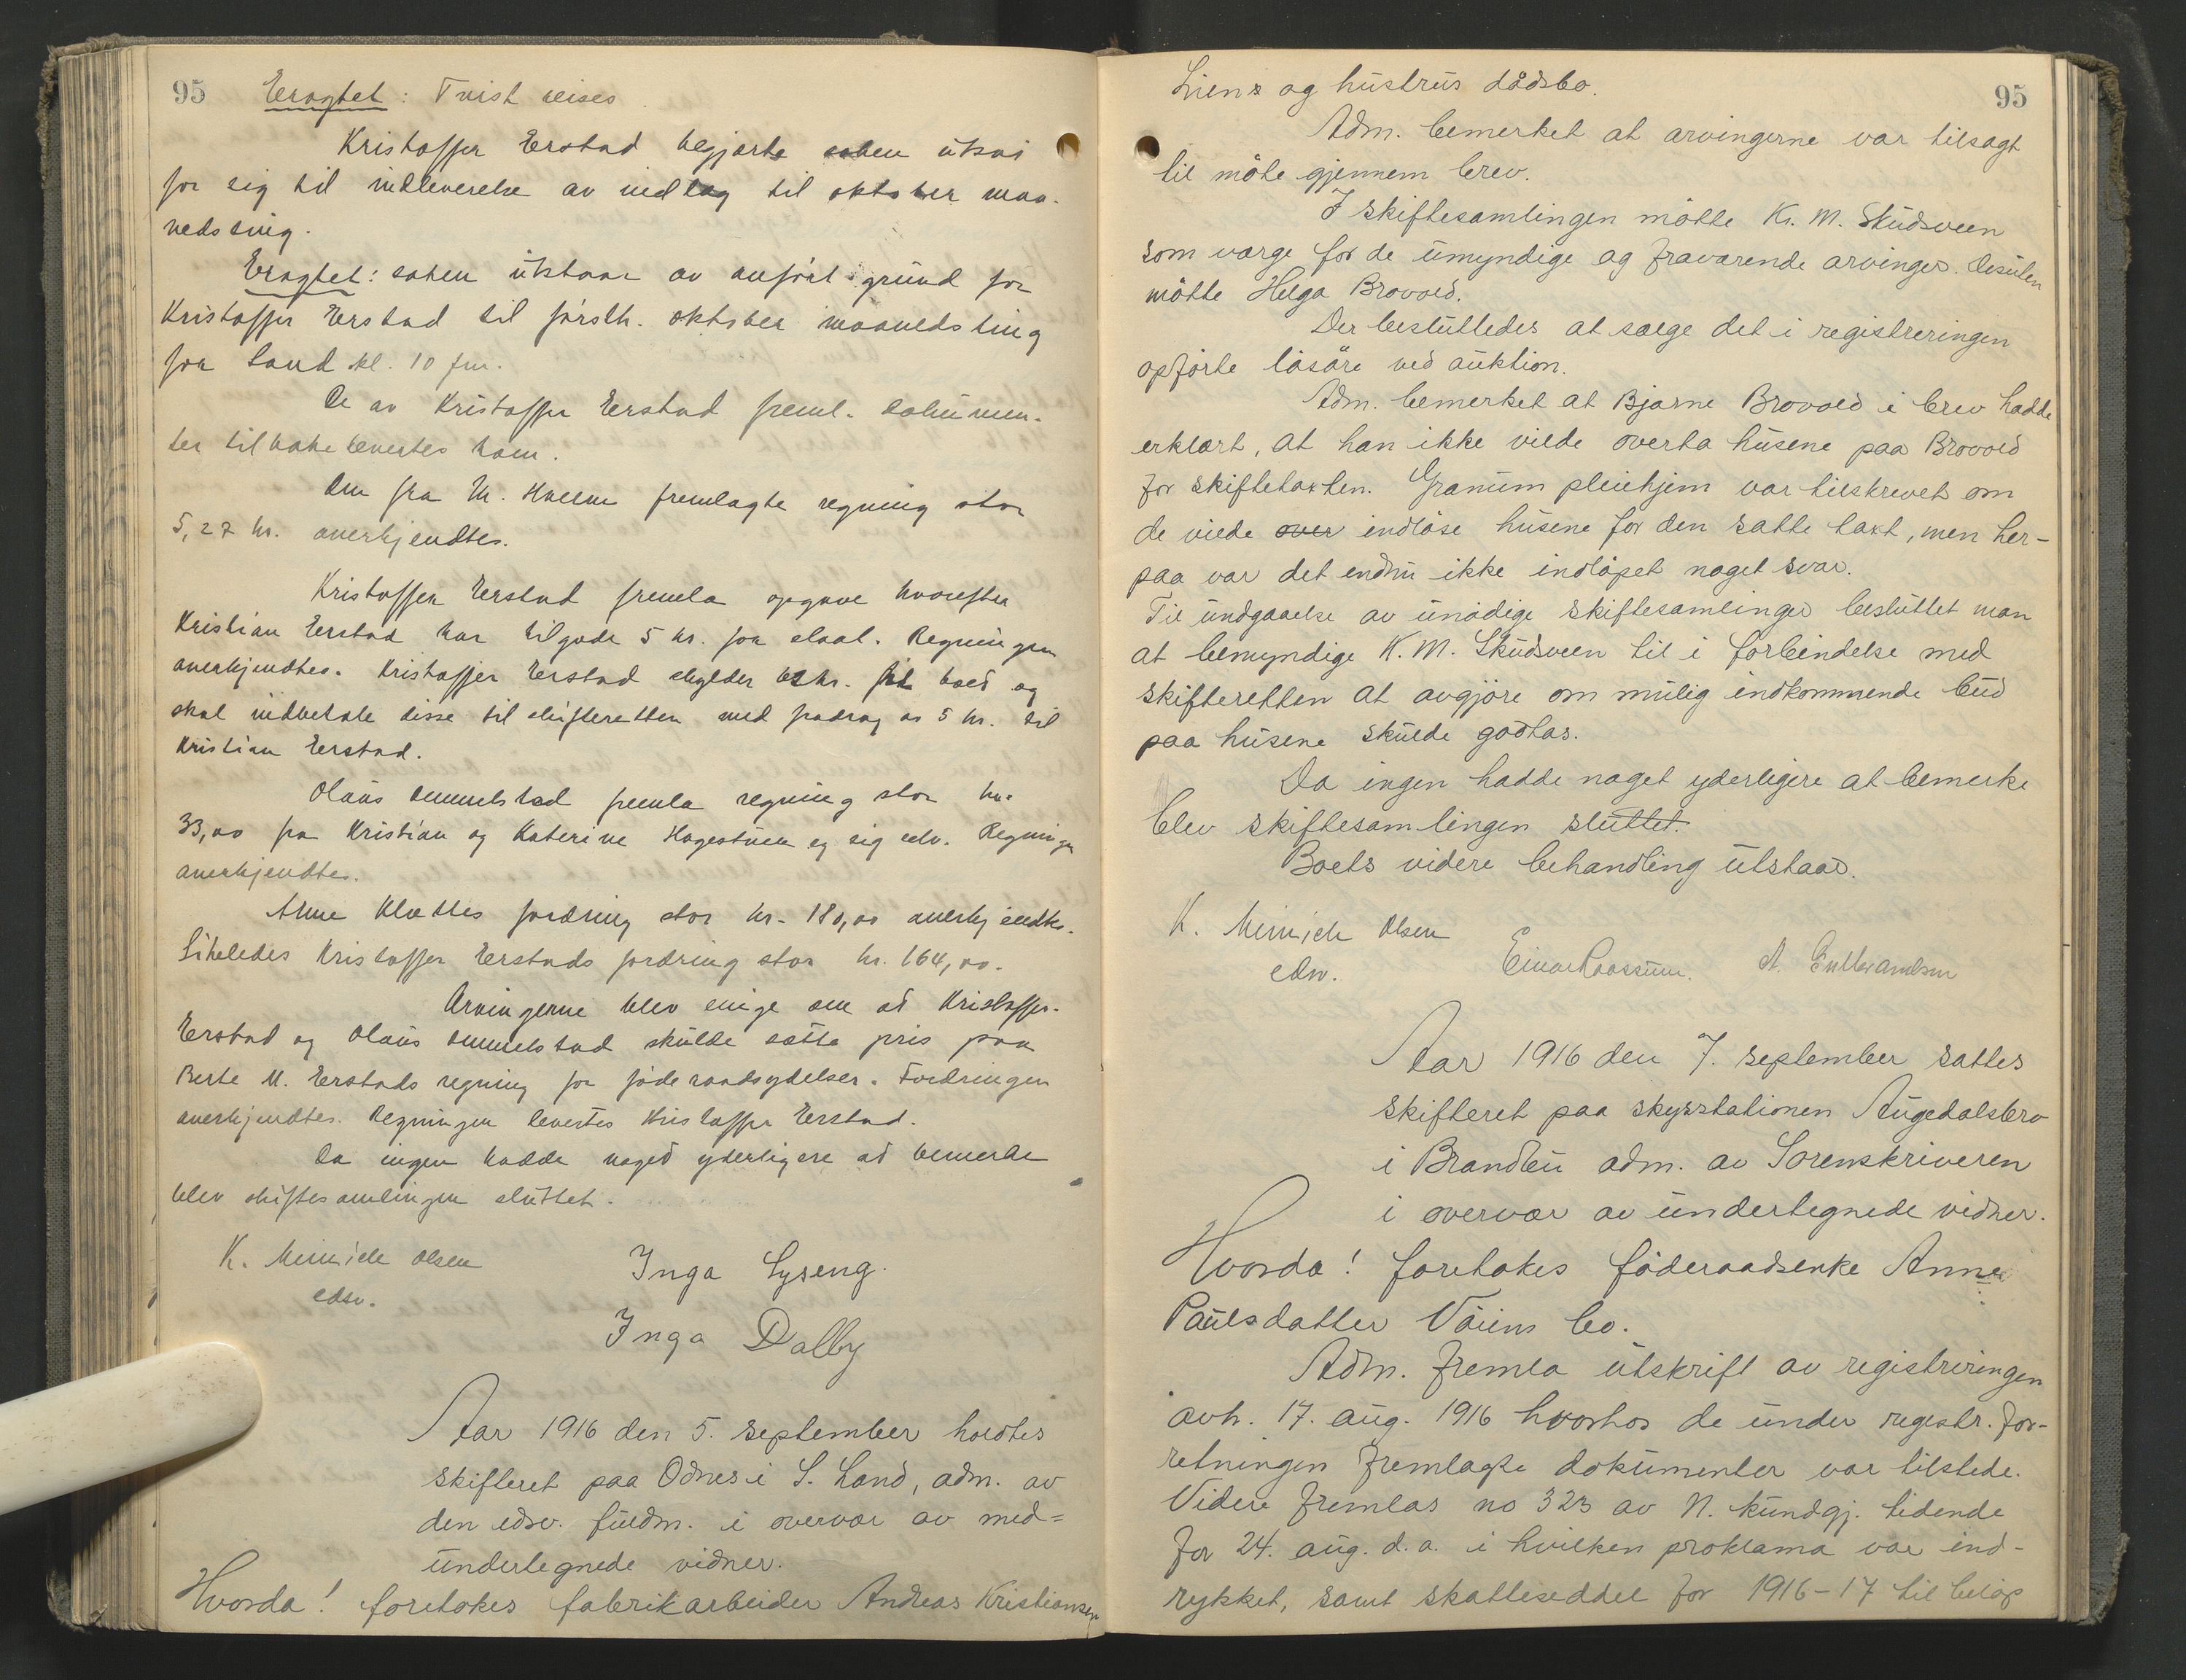 95 Eragtet: Tvist reises.
Kristoffer Erstad begjærte saken utsat
for sig til indleverelse av indlæg til oktober maa-
nedsting.
Eragtet: saken utstaar av anført grund for
Kristoffer Erstad til førstk. oktober maanedsting
for Land kl. 10 fm.
De av Kristoffer Erstad freml. dokumen-
ter tilbakelevertes ham.
Den fra M. fremlagte regning stor
5,27 kr. anerkjendtes.
Kristoffer Erstad fremla opgave hvorefter
Kristian Erstad har tilgode 5 kr. for slaat. Regningen
anerkjendtes. Kristoffer Erstad skylder kr. boet og
skal indbetale disse til skifteretten med fradrag av 5 kr. til
Kristian Erstad.
Olaus Ommelstad fremla regning stor kr.
33,00 fra Kristian og Katerine Hagestuen og sig selv. Regningen
anerkjendtes.
Anne Klættes fordring stor kr. 180,00 anerkjendtes.
Likeledes Kristoffer Erstads fordring stor kr. 164,00.
Arvingerne blev enige om at Kristoffer
Erstad og Olaus Ommelstad skulde sætte pris paa
Berte M. Erstads regning for føderaadsydelser. Fordringen
anerkjendtes. Regningen levertes Kristoffer Erstad.
Da ingen hadde noget yderligere at bemerke
blev skiftesamlingen sluttet.
K. Minich Olsen Inga Lyseng.
edsv.
Inga Dalby
Aar 1916 den 5. september holdtes
skifteret paa Odnes i S. Land, adm. av
den edsv. fuldm. i overvær av med-
undertegnede vidner.
Hvorda! foretokes fabrikarbeider Andreas Kristiansen
95
Liens og hustrus dødsbo.
Adm. bemerket at arvingerne var tilsagt
til møte gjennem brev.
I skiftesamlingen møtte Kr. M. Skudsveen
som værge for de umyndige og fraværende arvinger. Desuten
møtte Helga Brovold.
Der besluttedes at sælge det i registreringen
opførte løsøre ved auktion.
Adm. bemerket at Bjarne Brovold i brev hadde
erklært, at han ikke vilde overta husene paa Brovold
for skiftetaxten. Granum pleiehjem var tilskrevet om
de vilde over indløse husene for den satte taxt, men her-
paa var det endnu ikke indløpet noget svar.
Til undgaaelse av unødige skiftesamlinger besluttet man
at bemyndige K. M. Skudsveen til i forbindelse med
skifteretten at avgjøre om mulig indkommende bud
paa husene skulde godtas.
Da ingen hadde noget yderligere at bemerke
blev skiftesamlingen sluttet.
Boets videre behandling utstaar.
K. Minich Olsen
edsv. Einar Raassum. A. Gulbrandsen
Aar 1916 den 7. september sattes
skifteret paa skysstationen Augedalsbro
i Brandbu adm. av Sorenskriveren
i overvær av undertegnede vidner.
Hvorda! foretokes føderaadsenke Anne
Paulsdatter Vøiens bo.
Adm. fremla utskrift av registreringen
avh. 17. aug. 1916 hvorhos de under registr. for-
retningen fremlagte dokumenter var tilstede.
Videre fremlas no 323 av N. kundgj. tidende
for 24. aug. d.a. i hvilken proklama var ind-
rykket, samt skatteseddel for 1916-17 til beløp